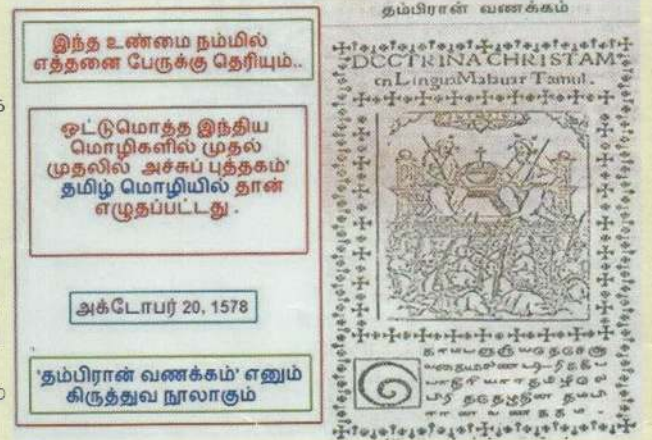 இந்த உண்மை நம்மில்
எத்தனை பேருக்கு தெரியும்..
ஒட்டுமொத்த இந்திய
மொழிகளில் முதல்
முதலில் அச்சுப் புத்தகம்'
தமிழ் மொழியில் தான்
எழுதப்பட்டது .
அக்டோபர் 20, 1578
'தம்பிரான் வணக்கம்' எனும்
கிருத்துவ நூலாகும்
தம்பிரான் வணக்கம்
DOCTRINA CHRISTAM
en Lingua Malauar Tamul .